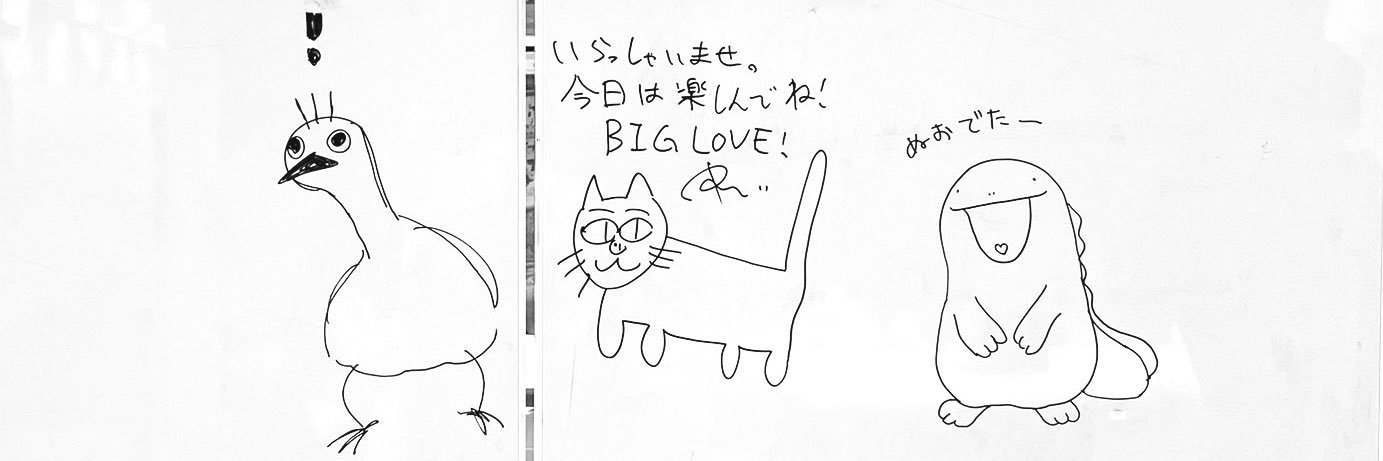 !
いらっしゃいませ。
今日は楽しんでね!
BIG LOVE!
ぬおでたー